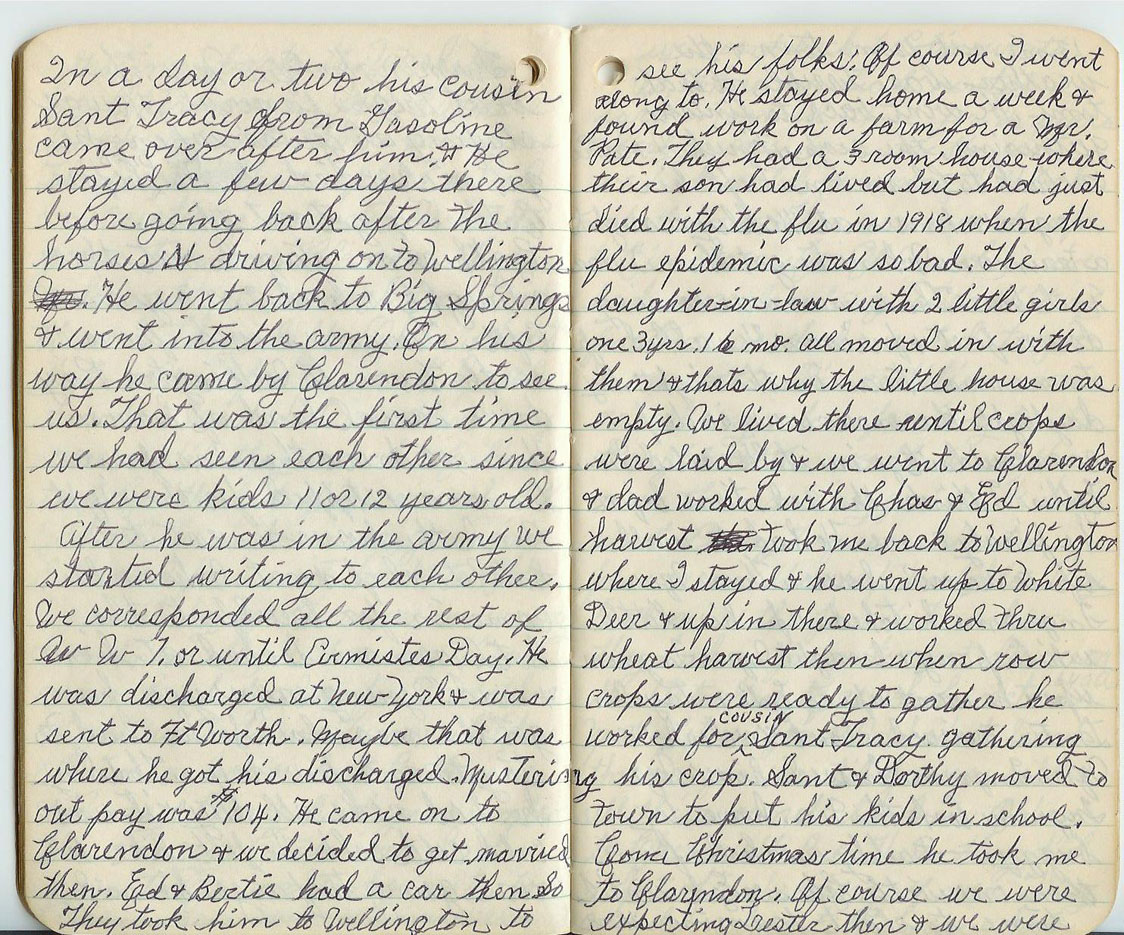 In a day or two his cousin
Sant Tracy from Gasoline
came over after him. & He
stayed a few days there
before going back after the
horses & driving on to Wellington
. He went back to Big Springs
& went into the army. On his
way he came by Clarendon to see
us. That was the first time
we had seen each other since
we were kids 11 or 12 years old.
After he was in the army we
started writing to each other.
We corresponded all the rest of
W W 1. or until Armistes Day. He
was discharged at New York & was
sent to Ft Worth. Maybe that was
where he got his discharged. Mustering
out pay was $104. He came on to
Clarendon & we decided to get married
then. Ed & Bertie had a car then So
They took him to Wellington to
see his folks. Of course I went
along to. He stayed home a week &
found work on a farm for a Mr.
Pate. They had a 3 room house where
their son had lived but had just
died with the flu in 1918 when the
flu epidemic was so bad. The
daughter-in-law with 2 little girls
one 3yrs. 1 6 mo. all moved in with
them & thats why the little house was
empty. We lived there until crops
were laid by & we went to Clarendon
& dad worked with Chas & Ed until
harvest Took me back to Wellington
where I stayed & he went up to White
Deer & up in there & worked thru
wheat harvest then when row
crops were ready to gather he
worked for cousin Sant Tracy gathering
his crop. Sant & Dorthy moved to
town to put his kids in school.
Come Christmas time he took me
to Clarendon. Of course we were
expecting Lester then & we were